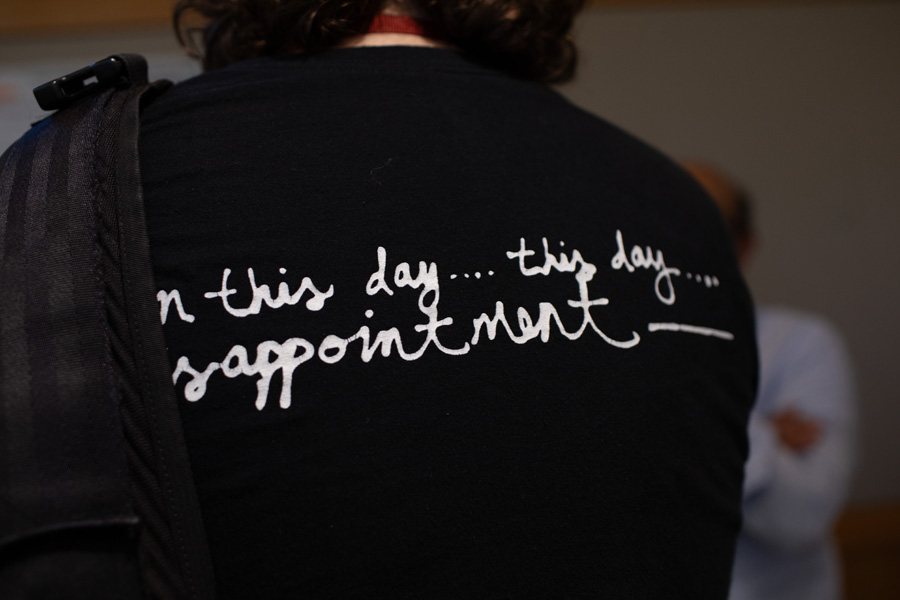 n this day.... this day.....
sappointment —